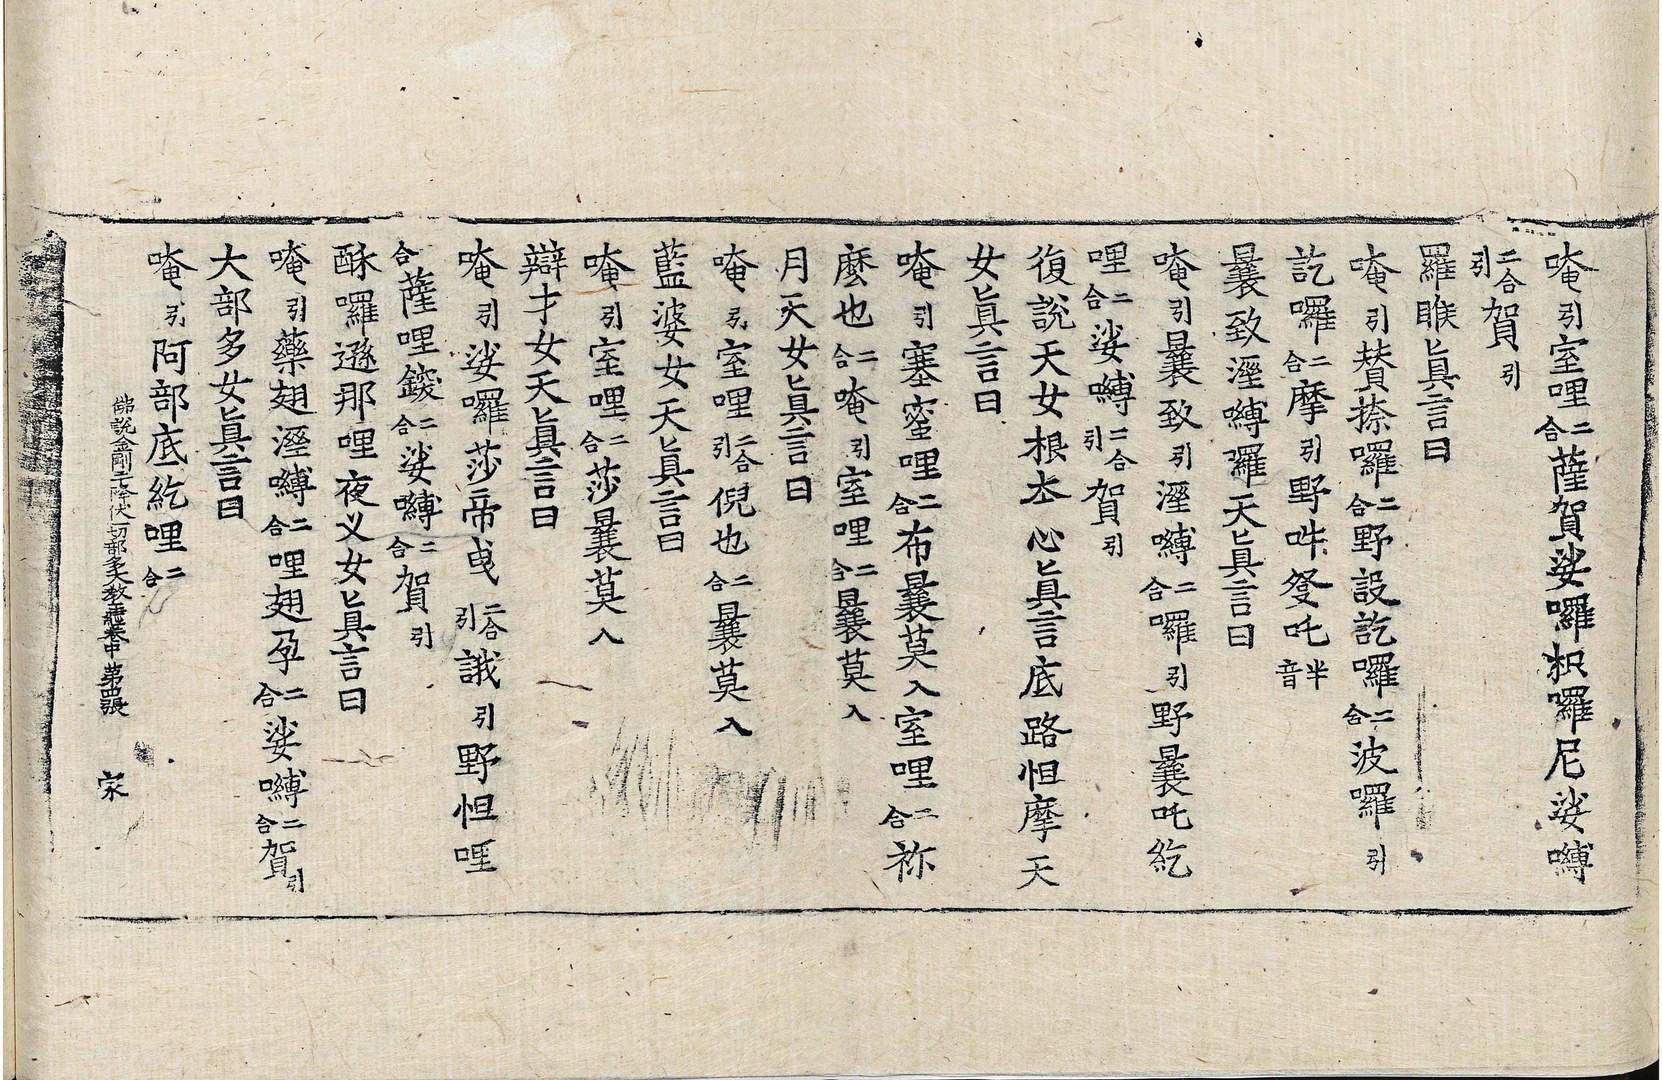 唵引室哩二合薩賀娑囉枳囉尼娑嚩
二合引賀引
羅睺真言曰
唵引賛捺囉二合野設訖囉二合波囉引
訖囉二合摩引野吽癹吒半音
曩致濕嚩囉天真言曰
唵引曩致引濕嚩二合囉引野曩吒紇
哩二合娑嚩二合引賀引
復說天女根本心真言底路怛摩天
女真言曰
唵引塞蜜哩二合布曩莫入室哩二合祢
麼也二合唵引室哩二合曩莫入
月天女真言曰
唵引室哩二合引倪也二合曩莫入
藍婆女天真言曰
唵引室哩二合莎曩莫入
辯才女天真言曰
唵引娑囉莎帝曳二合引誐引野怛哩
合薩哩鑁二合娑嚩二合賀引
酥囉遜那哩夜叉女真言曰
唵引藥翅濕嚩二合哩翅孕二合娑嚩二合賀引
大部多女真言曰
唵引阿部底紇哩二合
佛說金剛手降伏一切部多大教王經卷中 第四張 家